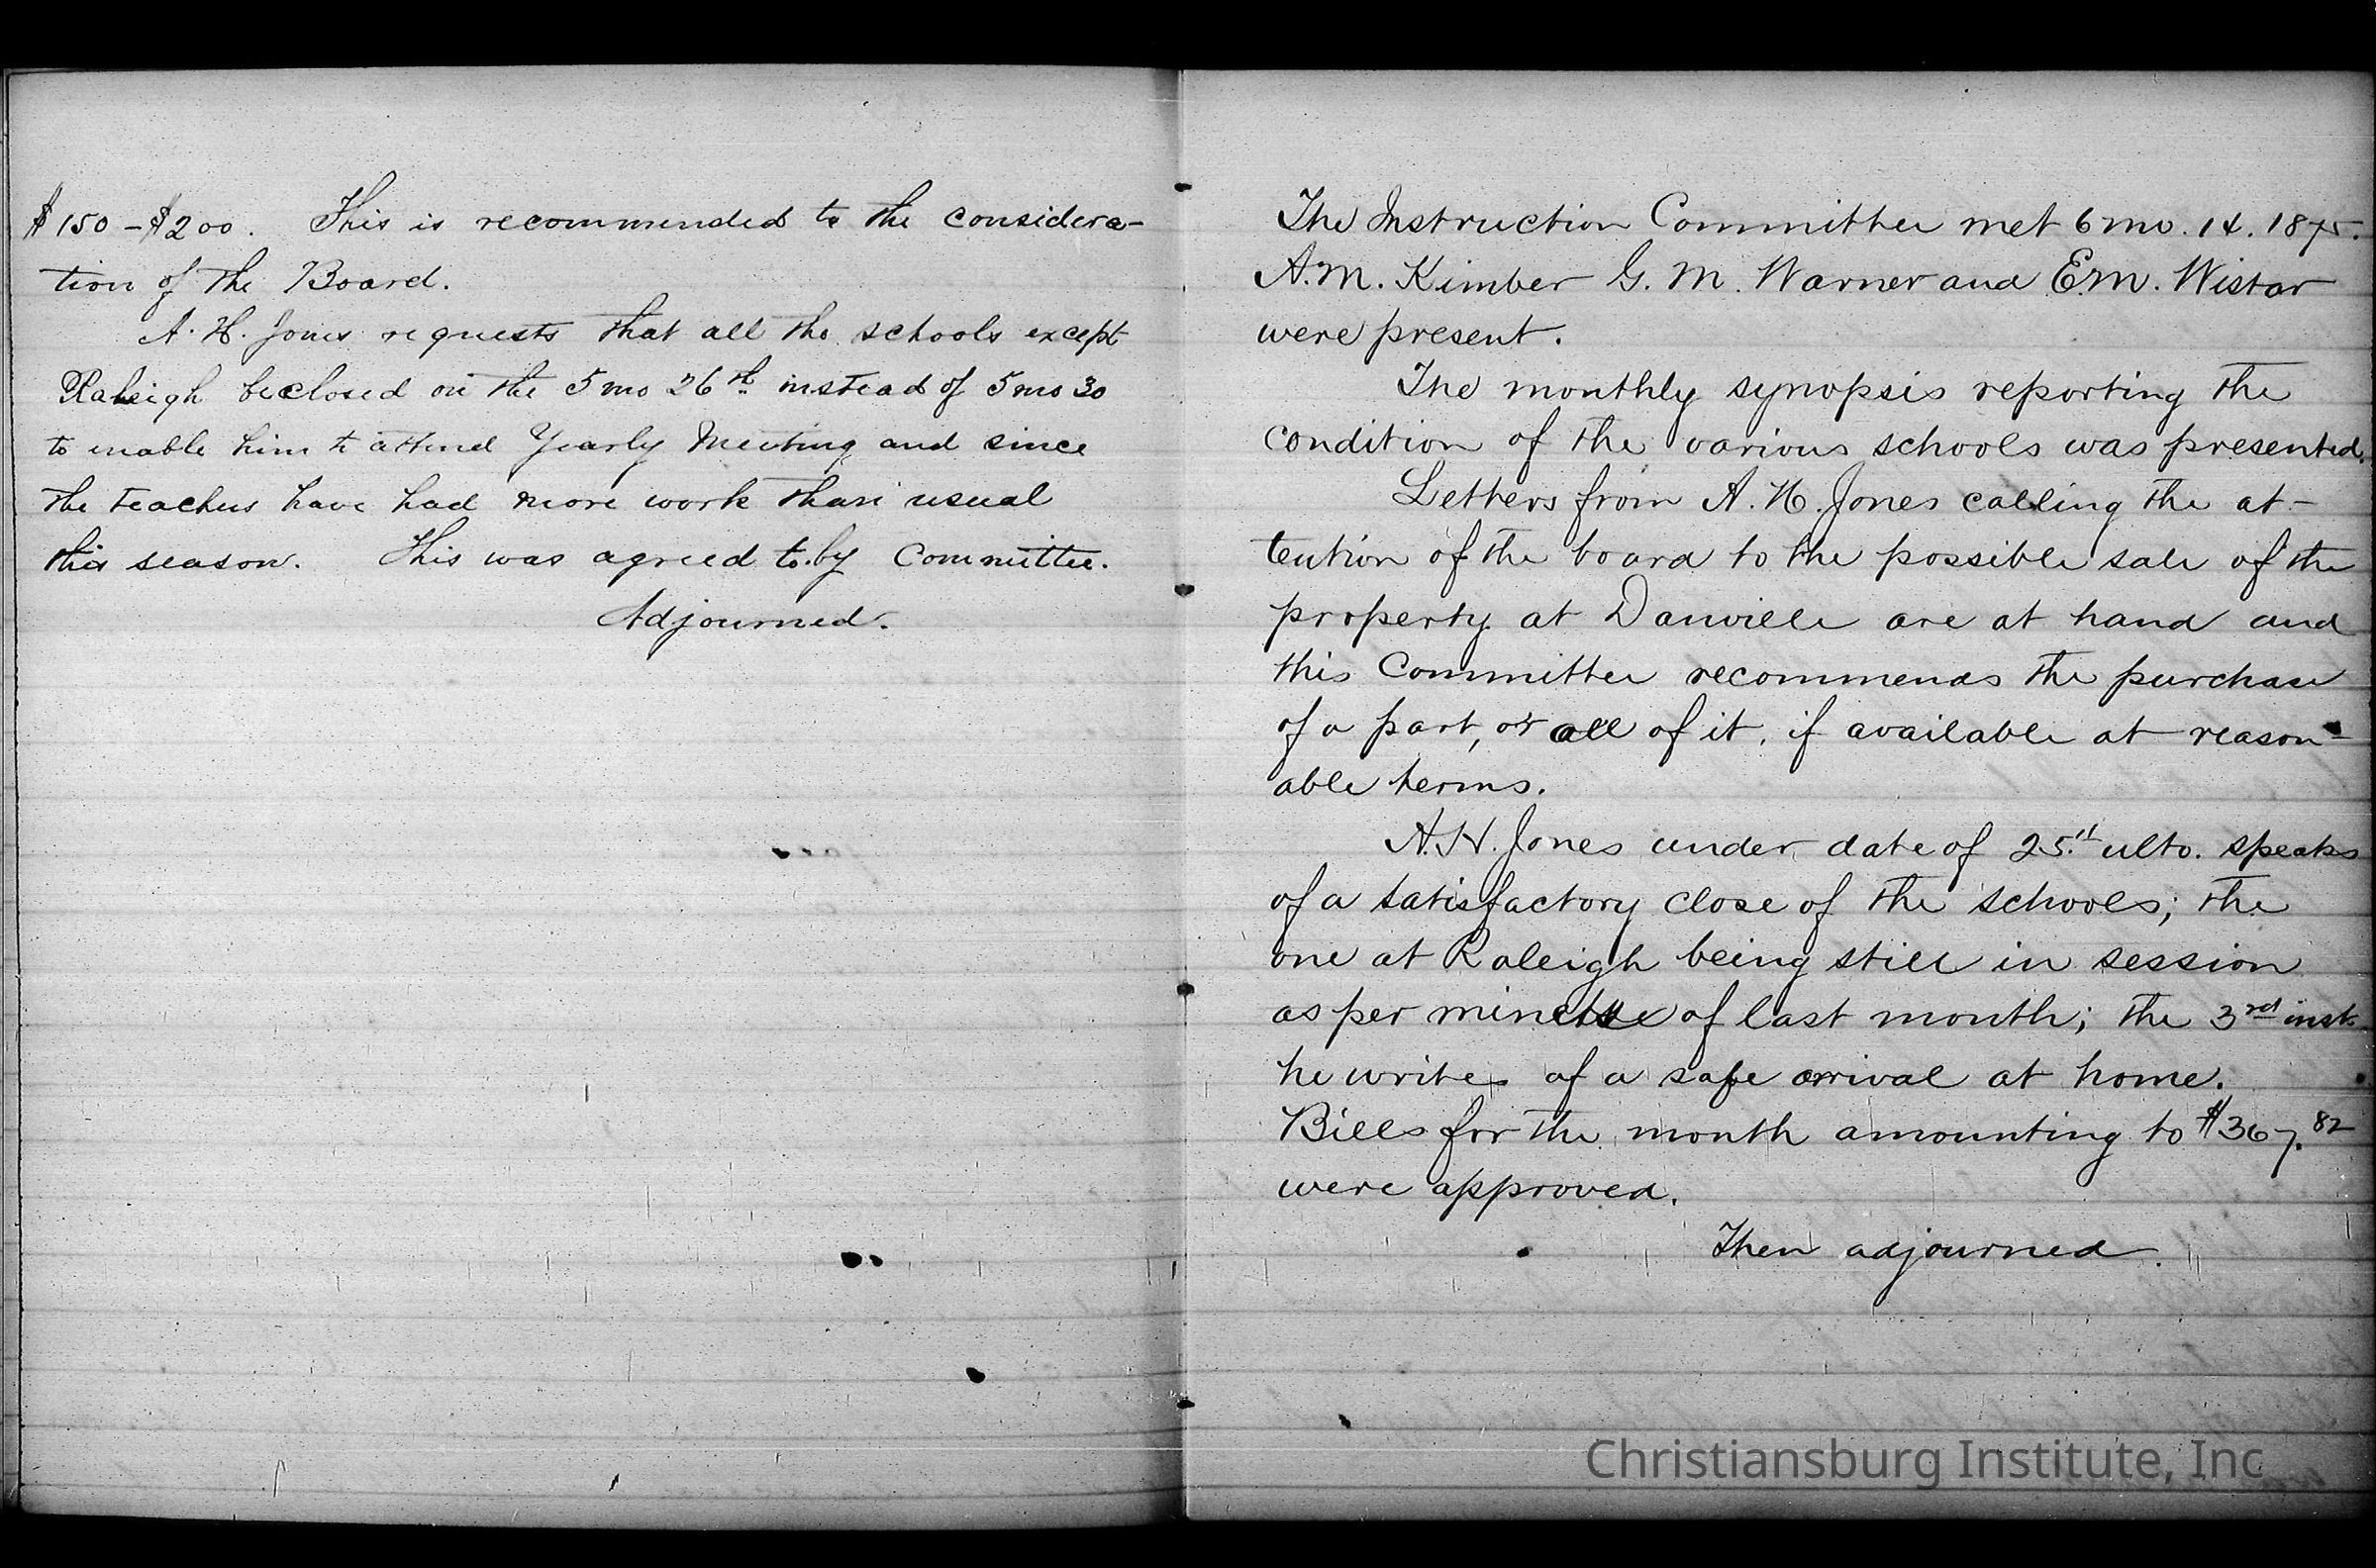 $150 - $200. This is recommended to the considera-
tion of the Board.
A. H. Jones requests that all the schools except
Raleigh be closed on the 5 mo 26th instead of 5 mo 30
to enable him to attend Yearly Meeting and since
the teachers have had more work than usual
this season. This was agreed to by Committee.
Adjourned.
The Instruction Committee met 6 mo. 14. 1875.
A. M. Kimber G. M. Warner and E. M. Wistar
were present.
The monthly synopsis reporting the
condition of the various schools was presented.
Letters from A. H. Jones calling the at-
tention of the board to the possible sale of the
property at Danville are at hand and
this Committee recommends the purchase
of a part, or all of it, if available at reason-
able terms.
A. H. Jones under date of 25th ulto. speaks
of a satisfactory close of the schools; the
one at Raleigh being still in session
as per minute of last month; the 3rd inst.
he writes of a safe arrival at home.
Bills for the month amounting to $367.82
were approved.
Then adjourned.
Christiansburg Institute, Inc